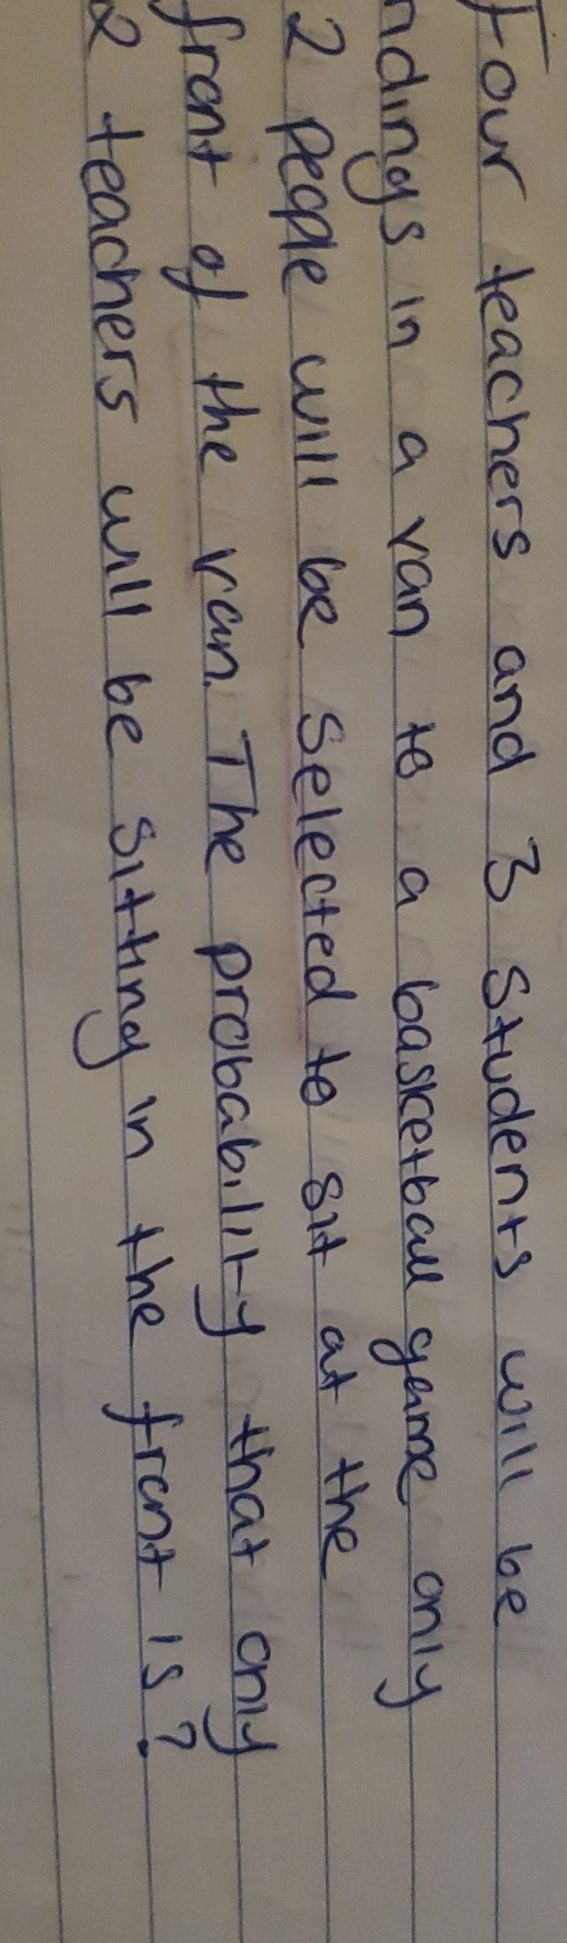 Four teachers and 3 students will be
ridings in a van to a basketball game only
2 people will be selected to sit at the
front of the van. The probability that only
2 teachers will be sitting in the front is?